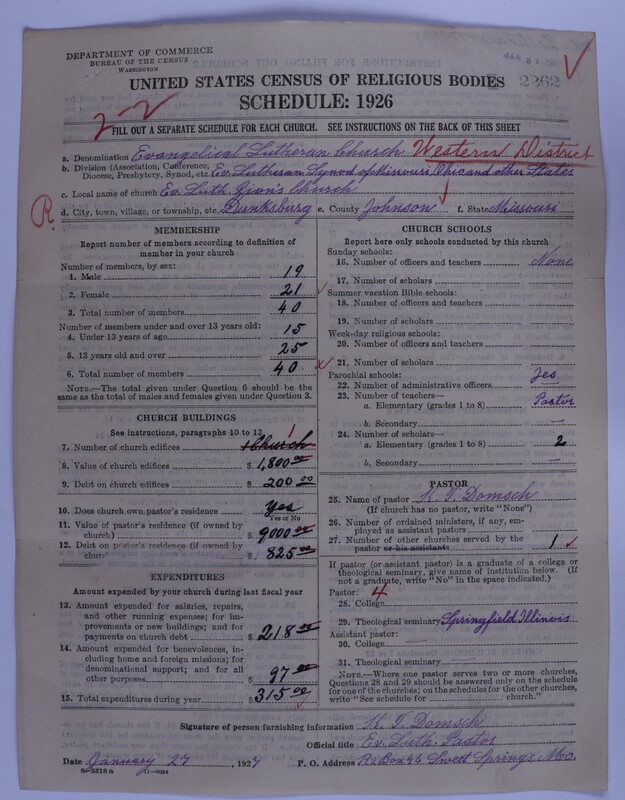 DEPARTMENT OF COMMERCE
BUREAU OF THE CENSUS
WASHINGTON
UNITED STATES CENSUS OF RELIGIOUS BODIES
2262
SCHEDULE: 1926
2-2
FILL OUT A SEPARATE SCHEDULE FOR EACH CHURCH. SEE INSTRUCTIONS ON THE BACK OF THIS SHEET
a. Denomination Evangelical Lutheran Church Western District
b. Division (Association, Conference,
Diocese, Presbytery, Synod, etc. Ev. Lutheran Synod of Missouri, Ohio and other States
c. Local name of church Ev. Luth. Zion's Church
R. d. City, town, village, or township, etc. Dunksburg e. County Johnson f. State Missouri
MEMBERSHIP
Report number of members according to definition of
member in your church
Number of members, by sex:
1. Male 19
2. Female 21
3. Total number of members 40
Number of members under and over 13 years old:
4. Under 13 years of age 15
5. 13 years old and over 25
6. Total number of members 40
NOTE.—The total given under Question 6 should be
same as the total of males and females given under Question 3.
CHURCH BUILDINGS
See instructions, paragraphs 10 to 12
7. Number of church edifices 1 Church 1
8. Value of church edifices $ 1,800 00
9. Debt on church edifices $ 200 00
10. Does church own pastor's residence yes
Yes or No
11. Value of pastor's residence (if owned by
church) $ 9000 00
12. Debt on pastor's residence (if owned by
church) $ 825 00
EXPENDITURES
Amount expended by your church during last fiscal year
13. Amount expended for salaries, repairs,
and other running expenses; for im-
provements or new buildings; and for
payments on church debt $ 218 00
14. Amount expended for benevolences, in-
cluding home and foreign missions; for
denominational support; and for all
other purposes $ 97 00
15. Total expenditures during year $ 315 00
CHURCH SCHOOLS
Report here only schools conducted by this church
Sunday schools:
16. Number of officers and teachers None
17. Number of scholars
Summer vacation Bible schools:
18. Number of officers and teachers
19. Number of scholars
Week-day religious schools:
20. Number of officers and teachers
21. Number of scholars
Parochial schools: Yes
22. Number of administrative officers —
23. Number of teachers—
a. Elementary (grades 1 to 8) Pastor
b. Secondary —
24. Number of scholars—
a. Elementary (grades 1 to 8) 2
b. Secondary —
PASTOR
25. Name of pastor Domsch
(If church has no pastor, write "None")
26. Number of ordained ministers, if any, em-
ployed as assistant pastors
27. Number of other churches served by the
pastor or his assistants 1
If pastor (or assistant pastor) is a graduate of a college or
theological seminary, give name of institution below. (If
not a graduate, write "No" in the space indicated.)
Pastor: 4
28. College
29. Theological seminary Springfield, Illinois
Assistant pastor:
30. College
31. Theological seminary
NOTE.—Where one pastor serves two or more churches,
Questions 28 and 29 should be answered only on the schedule
for one of the churches; on the schedules for the other churches,
write "See schedule for church."
Signature of person furnishing information Domsch
Official title Ev. Luth. Pastor
Date January 27, 1927 P. O. Address R2 Box 46 Sweet Springs, Mo.
8—5518 a 11—9024